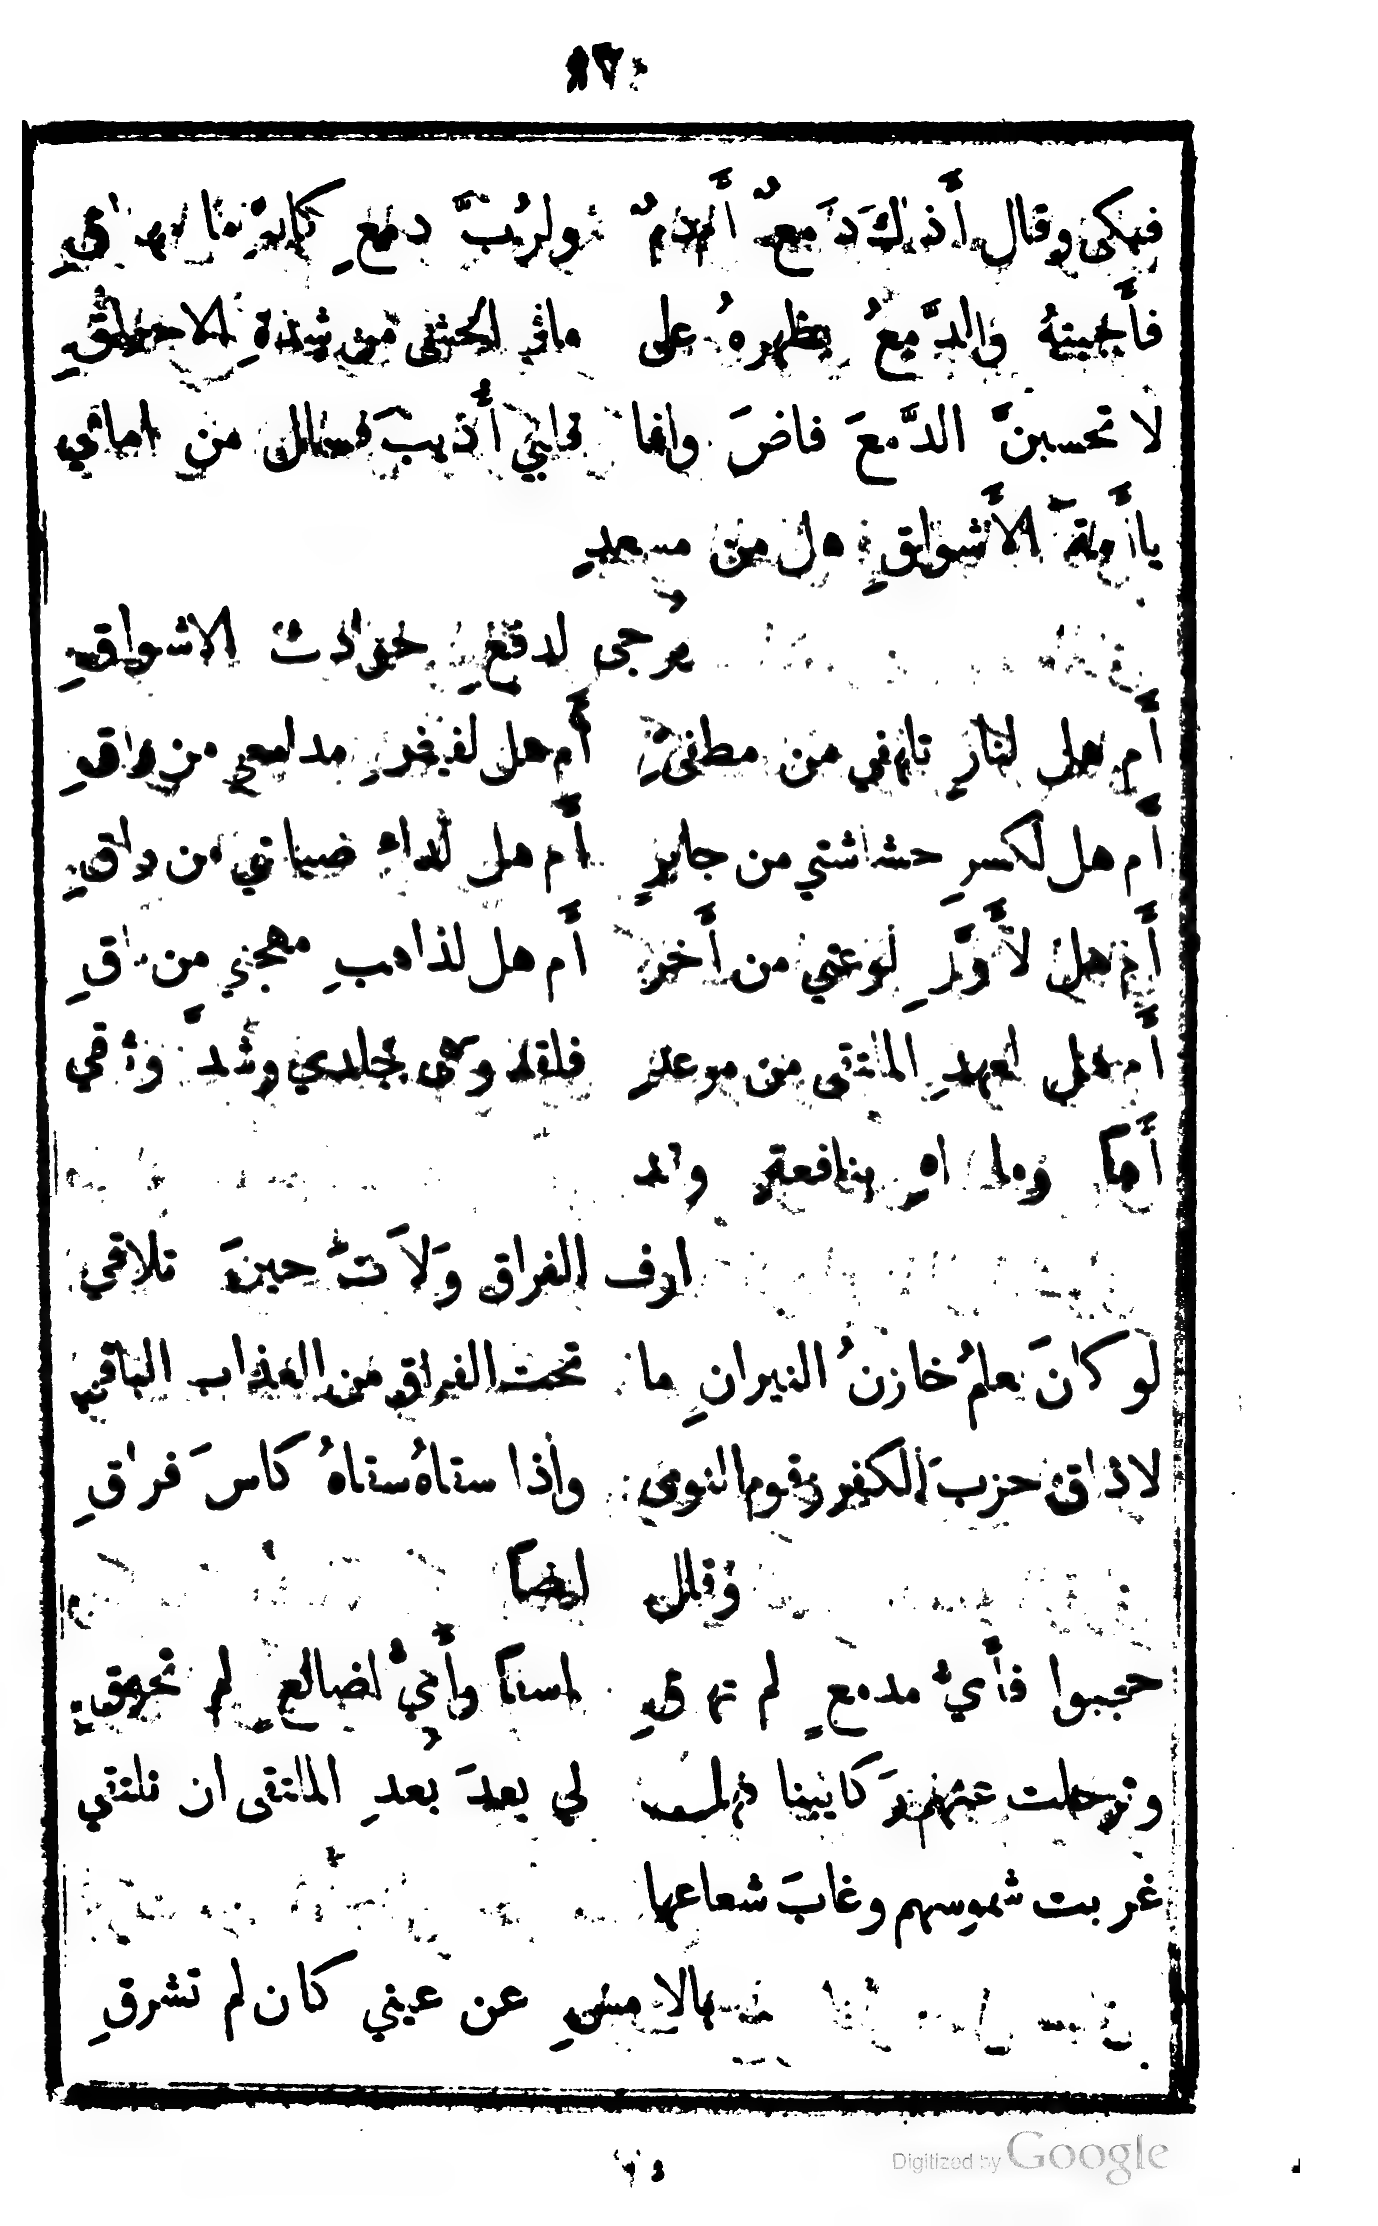 فبكى وقال أذلك دمعٌ أم دمٌ ولرُبَّ دمعٍ
فأجبته والدَّمعُ يظهرهُ على مافي الحشى من شدة الاحراقِ
لا تحسبنَّ الدَّمعَ فاضَ وانما قلبي أذيبَ فسال من اماقي
يا أمة الأشواقِ هل من مسعدٍ
يُرجى لدفع حوادث الاشواقِ
أم هل لنارِ تلهفي من مطفئٍ أم هل لفيض مدامعي من واقِ
أم هل لكسرِ حشاشتي من جابرٍ أم هل لداء صبابتي من راقِ
أم هل لأوَّلِ لوعتي من أخر أم هل لذاهبِ مهجتي من باقِ
أم هل لعهدِ الملتقى من موعد فلقد وهى جلدي وشدَّ وثاقي
أهاً وما اهٍ بنافعةٍ وقد
ازف الفراق وَلاَتَ حينَ تلاقي
لو كانَ يعلمُ خازنُ النيرانِ ما تحت الفراق من العذاب الباقي
لاذاقَ حزبَ الكفر زقوم النوى واذا سقاهُ سقاهُ كاسَ فراقِ
وقال ايضاً
حجبوا فأيُّ مدمعٍ لم تهرقِ اسفاً وأيُّ اضالعٍ لم تحرقِ
وترحلت عنهم ركايبنا فهل لي بعدَ بُعدِ الملتقى ان نلتقي
غربت شموسهم وغابَ شعاعها
بالامسِ عن عيني كان لم تشرقِ
Digitized by Google